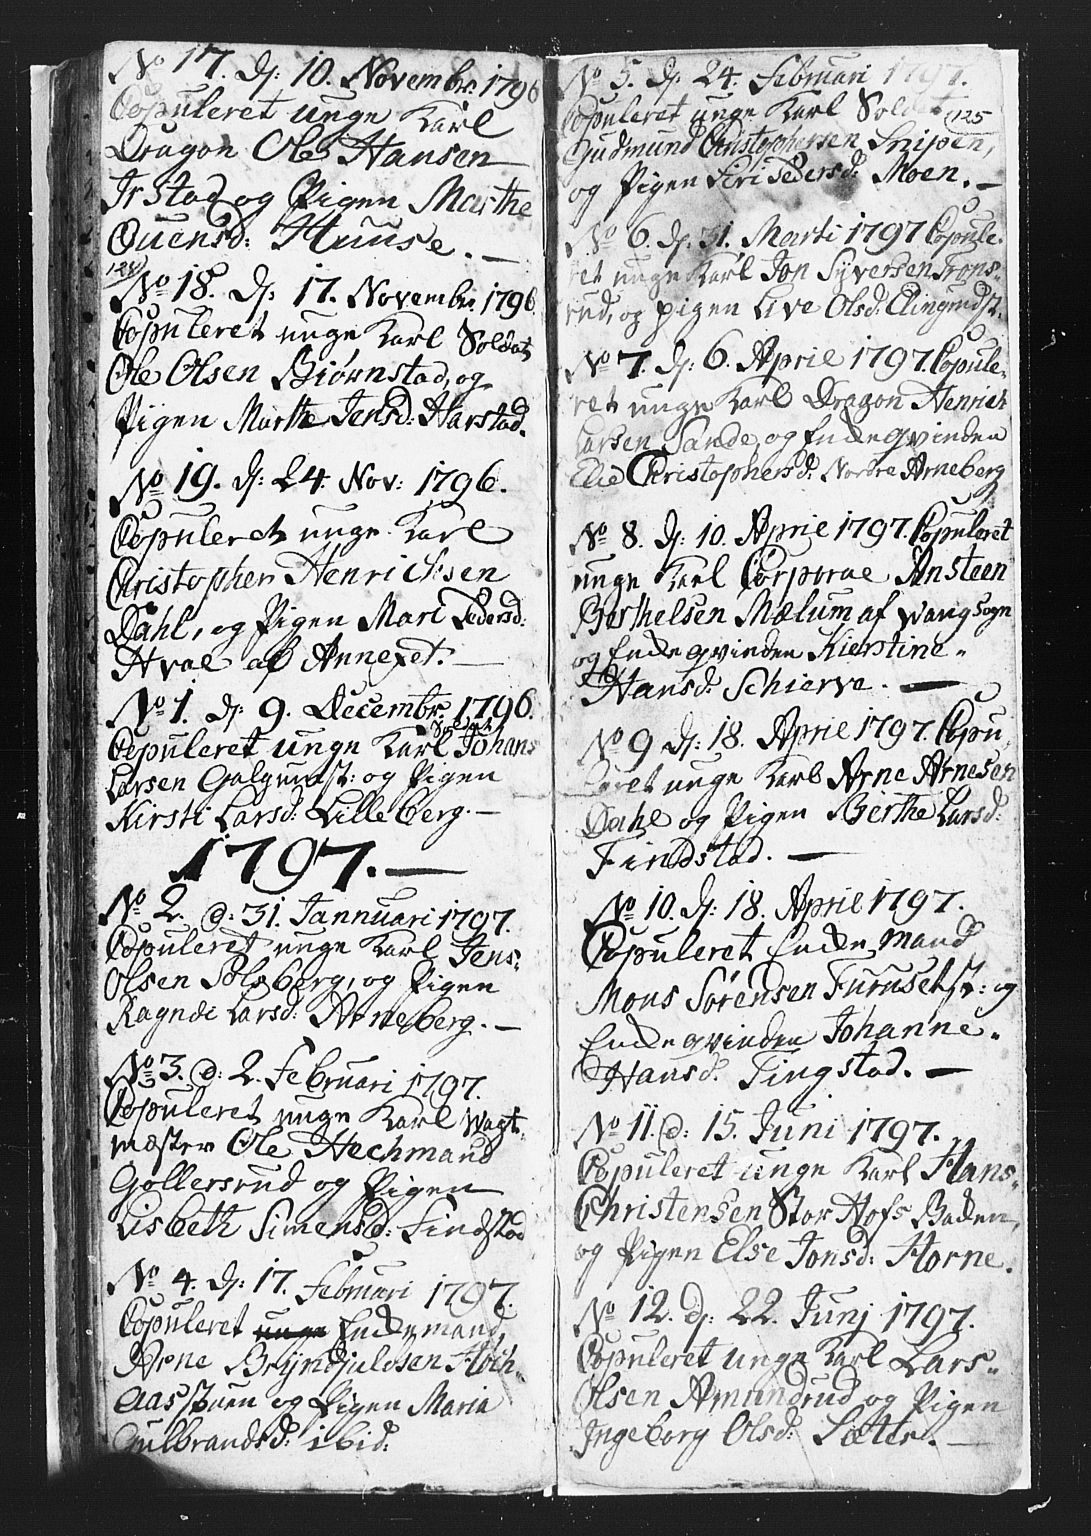 No 17. d: 10. Novembr. 1796
Copuleret unge Karl
Dragon Ole Hansen
Irstad og Pigen Marthe
Ouensd: Huuse. —
124
No 18. d: 17. Novembr. 1796.
Copuleret unge Karl Soldat
Ole Olsen Biørnstad, og
Piigen Marthe Jensd: Harstad.
No 19. d: 24. Nov: 1796.
Copuleret unge Karl
Christopher Henrichsen
Dahl, og Pigen Mari Pedersd:
Hval af Annexet. —
No 1. d: 9. Decembr. 1796.
Soldat
Copuleret unge Karl Johans
Larsen Galgumst: og Pigen
Kirsti Larsd: Lilleberg. —
1797. —
No 2. d: 31. Jannuari 1797.
Copuleret unge Karl Jens
Olsen Solberg, og Pigen
Ragnde Larsd: Arneberg. —
No 3. d: 2. Februari 1797.
Copuleret unge Karl Wagt-
mæster Ole Hechmand
Gollersrud og Pigen
Lisbeth Simensd: Findstad
No 4. d: 17. Februari 1797.
Copuleret unge Enckemand,
Arne Bryndjuldsen
og Pigen Maria
Gulbrandsd: ibid:
No 5. d: 24. Februari 1797.
Copuleret unge Karl Soldat
125
Gudmund Christophersen Snipen,
og Pigen Siri Pedersd: Moen. —
No 6. d: 31. Marti 1797 Copule-
ret unge Karl Jon Syversen Trons-
rud, og pigen Live Olsd: Elingndst.
No 7. d: 6. April 1797. Copule-
ret unge Karl Dragon Henrich
Larsen Sande, og Enckeqvinden
Elie Christophersd: Nordre Arneberg
No 8. d: 10. April 1797. Copuleret
unge Karl Corporal Ansteen
Berthelsen Mælum af Wang Sogn
og Enckeqvinden Kierstine
Hansd: Schierve. —
No 9 d: 18. April 1797. Copu-
leret unge Karl Arne Arnesen
Dahl og Pigen Berthe Larsd:
Findstad. —
No 10. d: 18. April 1797.
Copuleret Enckemand
Mons Sørensen Furusetst: og
Enckeqvinden Johanne
Hansd: Tingstad. —
No 11. d: 15. Juni 1797.
Copuleret unge Karl Hans
Christensen StorHofs Backen,
og Pigen Else Jonsd: Horne.
No 12. d: 22. Junj 1797.
Copuleret unge Karl Lars
Olsen Amundrud og Pigen
Ingeborg Olsd: Sæter. —